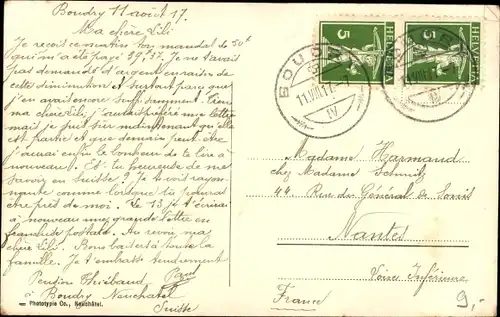 Boudry 11 août 17.
Ma chère Lili
Je reçois ce matin ton mandat de 50f
qui m'a été payé 39,37. Je ne t'avais
pas demandé d'argent en raison de
cette diminution et surtout parce que
j'en avais encore suffisamment. Tiens
ma chère Lili j'aurais préféré une lettre
mais je suis sûr maintenant qu'elle
est partie et que demain peut être
j'aurai enfin le bonheur de te lire à
nouveau! Es-tu heureuse de me
savoir en Suisse? Je te vois rayon-
nante comme lorsque tu pouvais
être près de moi. Le 13 je t'écrirai
à nouveau une grande lettre en
franchise postale. Au revoir, ma
chère Lili. Bons baisers à toute la
famille. Je t'embrasse tendrement
Paul
Pension Thiébaud
à Boudry Neuchatel
Suisse
Phototypie Co., Neuchâtel.
5
HELVETIA
5
HELVETIA
BOUDRY
11.VIII.17.-7
IV
11.VIII.17
IV
Madame Harmand
chez Madame Schmitz
44 Rue du Général de Sonis
Nantes
Loire Inférieure
France
9,-